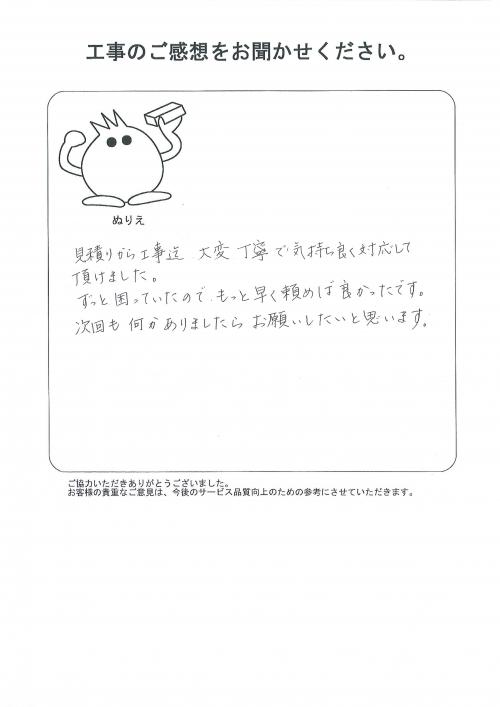 工事のご感想をお聞かせください。
ぬりえ
見積りから工事迄 大変 丁寧で気持ち良く対応して
頂けました。
ずっと困っていたので、もっと早く頼めば良かったです。
次回も何かありましたらお願いしたいと思います。
ご協力いただきありがとうございました。
お客様の貴重なご意見は、今後のサービス品質向上のための参考にさせていただきます。